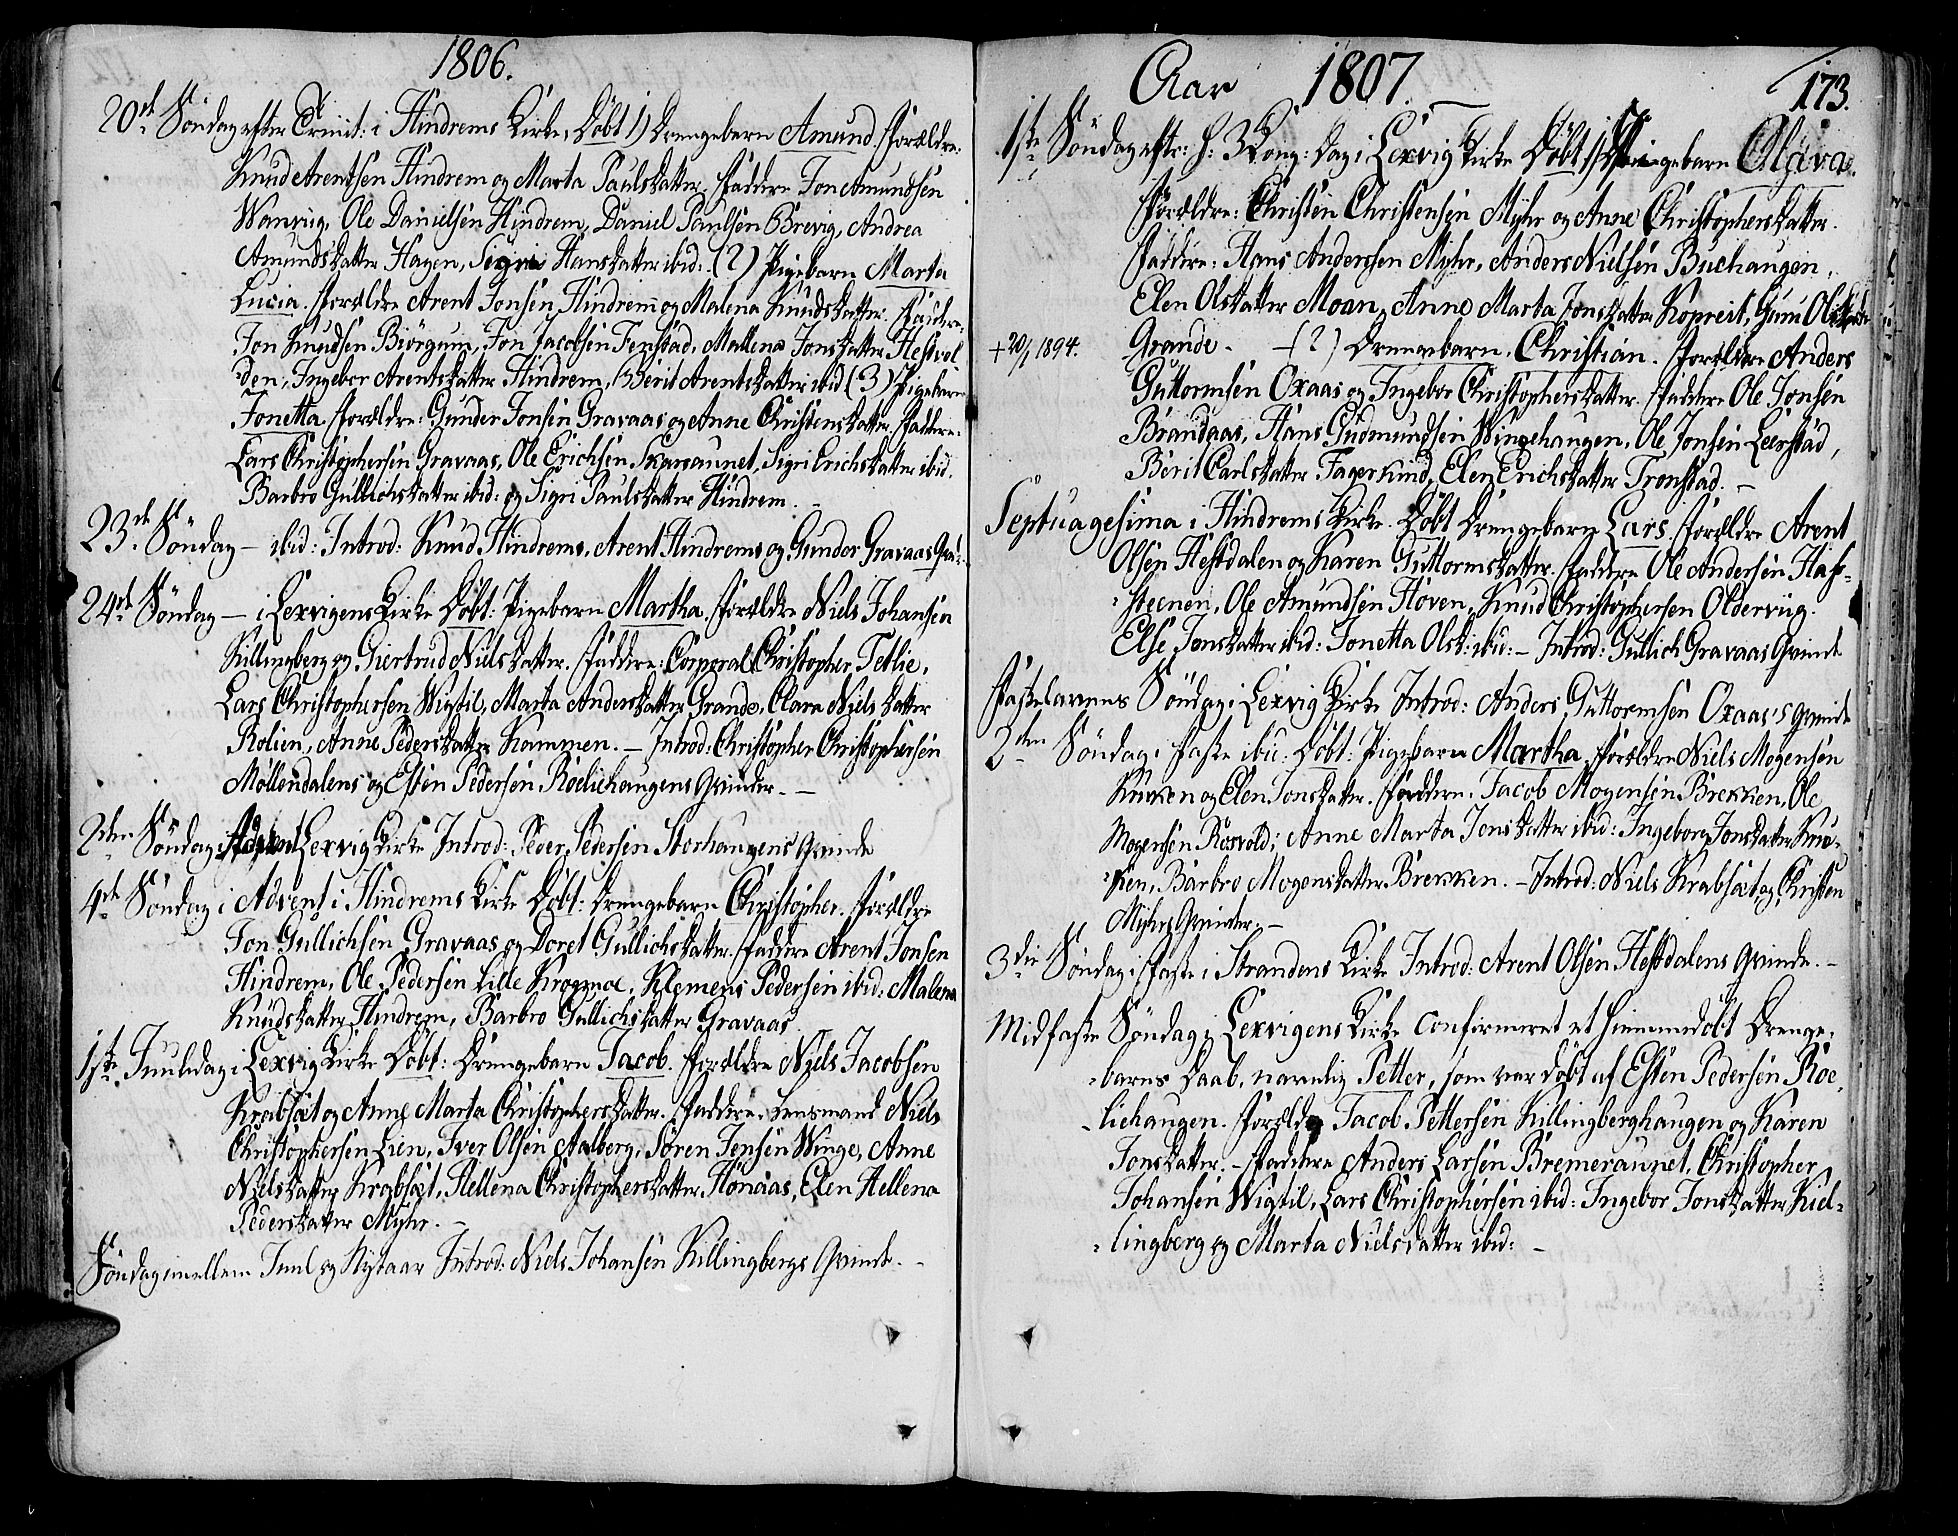 1806.
20de Söndag efter Trinit: i Hindrems Kirke, Döbt 1) Drengebarn Amund. Forældre:
Knud Arentsen Hindrem og Marta Paulsdatter. Faddere Jon Amundsen
Wanvig, Ole Danielsen Hindrem, Daniel Paulsen Brevig, Andrea
Amundsdatter Hagen, Sigri Hansdatter ibid: (2) Pigebarn Marta
Lucia. Forældre Arent Jonsen Hindrem og Malena Knudsdatter. Faddere:
Jon Knudsen Biörgum, Jon Jacobsen Fenstad, Mallena Jonsdatter Hestvol
den, Ingebor Arentsdatter Hindrem, Berit Arentsdatter ibid (3) Pigebarn
Jonetta Forældre: Gunder Jonsen Gravaas og Anne Christensdatter. Faddere:
Lars Christophersen Gravaas, Ole Erichsen Skaraunet, Sigri Erichsdatter ibid.
Barbro Gullichsdatter ibid: og Sigri Paulsdatter Hindrem. -
23de Söndag - ibid: Introd: Knud Hindrems, Arent Hindrems og Gunder Gravaas Qvi-
24de Söndag - i Lexvigens Kirke Döbt: Pigebarn Martha. Forældre Niels Johansen
Killingberg og Giertrud Nielsdatter. Faddere: Corporal Christopher Tetlie,
Lars Christophersen Wigtil, Marta Andersdatter Grande, Clara Nielsdatter
Rolien, Anne Pedersdatter Kammen. - Introd: Christopher Christophersen
Møllendalens og Esten Pedersen Röelichaugens Qvinder. -
2den Söndag i Advent Lexvig Kirke Introd: Peder Pedersen Storhaugens Qvinde
4de Söndag i Advent i Hindrems Kirke Döbt: Drengebarn Christopher. Forældre
Jon Gullichsen Gravaas og Doret Gullichsdatter. Faddere Arent Jonsen
Hindrem, Ole Pedersen Lille Kragenæs, Klemens Pedersen ibid: Malena
Knudsdatter Hindrem, Barbro Gullichsdatter Gravaas.
1ste Juuledag i Lexvig Kirke Döbt: Drengebarn Jacob. Forældre Niels Jacobsen
Krabsæt og Anne Marta Christophersdatter. Faddere: Lensmand Niels
Christophersen Lien, Iver Olsen Aalberg, Sören Jensen Winge, Anne
Nielsdatter Krabsæt, Hellena Christophersdatter Hönaas, Elen Hellena
Pedersdatter Myhr. -
Söndag imellem Juul og Nytaar Introd: Niels Johansen Killingbergs Qvinde. -
Aar 1807. 173.
1ste Söndag eftr: h: 3 Kong: Dag i Lexvig Kirke Döbt 1) Pigebarn Olava.
Forældre: Christen Christensen Myhr og Anne Christophersdatter.
Faddere: Hans Andersen Myhr, Anders Nielsen Buchaugen,
Elen Olsdatter Moan, Anne Marta Jonsdatter Kopreit, Guru Olsdatter
+ 20/1 1894. Grande. - (2) Drengebarn, Christian. Forældre Anders
Guttormsen Oxaas og Ingebor Christophersdatter. Faddere Ole Jonsen
Brandaas, Hans Gudmundsen Wingehaugen, Ole Jonsen Leerstad,
Berit Carlsdatter Fagerkind, Elen Erichsdatter Tronstad. -
Septuagesima i Hindrems Kirke. Döbt Drengebarn Lars. Forældre Arent
Olsen Hestdalen og Karen Guttormsdatter. Faddere Ole Andersen Haf-
steenen, Ole Amundsen Höven, Knud Christophersen Oldervig.
Else Jonsdatter ibid: Jonetta Olsd: ibid: - Introd: Gullich Gravaas Qvinde
Fastelavens Söndag i Lexvig Kirke Introd: Anders Guttormsen Oxaas's Qvinde
2den Söndag i Faste ibid: Döbt: Pigebarn Martha. Forældre Niels Mogensen
Kruken og Elen Jonsdatter. Faddere. Jacob Mogensen Brekken, Ole
Mogensen Rösvold; Anne Marta Jonsdatter ibid: Ingeborg Jonsdatter Kru-
ken, Barbro Mogensdatter Brekken. - Introd: Niels Krabsæt og Christen
Myhrs Qvinder. -
3die Söndag i Faste i Strandens Kirke Introd: Arent Olsen Hestdalens Qvinde. -
Midfaste Söndag i Lexvigens Kirke Confirmeret et hiemmedöbt Drenge-
barns Daab, navnlig Petter, som var döbt af Esten Pedersen Röe
lichaugen. Forældre Jacob Pettersen Killingberghaugen og Karen
Jonsdatter. - Faddere Anders Larsen Bremeraunet, Christopher
Johansen Wigtil, Lars Christophersen ibid: Ingebor Jonsdatter Kil-
lingberg og Marta Nielsdatter ibid: -